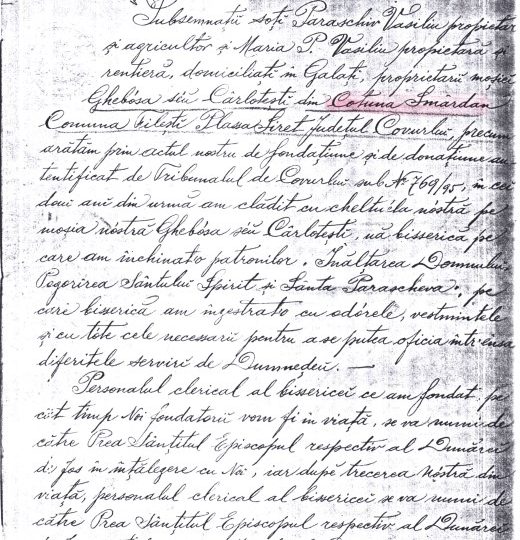 Subsemnații soți Paraschiv Vasiliu proprietar
și agricultor și Maria P. Vasiliu propietară și
rentieră, domiciliați in Galați, proprietarii moșiei
Ghebósa séu Cârlotești din Cotuna Smârdan
Comuna Filești Plassa Siret Județul Covurlui, precum
arătăm prin actul nostru de fondațiune și de donațiune au-
tentificat de Tribunalul de Covurlui sub No 769/95, în cei
doui ani din urmă am clădit cu cheltuéla nóstră pe
moșia nóstră Ghebósa séu Cârlotesti, uă bisserică pe
care am inchinato patronilor. Inălțarea Domnului
Pogorirea Sântului Spirit și Santa Parascheva. pe
care biserică am inzestrato cu odórele, vestmintele
și cu tóte cele necesarii pentru a se putea oficia intrensa
diferitele serviri de Dumnedeu. —
Personalul clerical al bissericei ce am fondat, pe
cât timp Noi fondatorii vom fi in viață, se va numi de
către Prea Sântitul Episcopul respectiv al Dunărei
de jos in ințălegere cu Noi, iar după trecerea Nóstră din
viață, personalul clerical al bissericei se va numi de
către Prea Sânțitul Episcopul respectiv al Dunărei